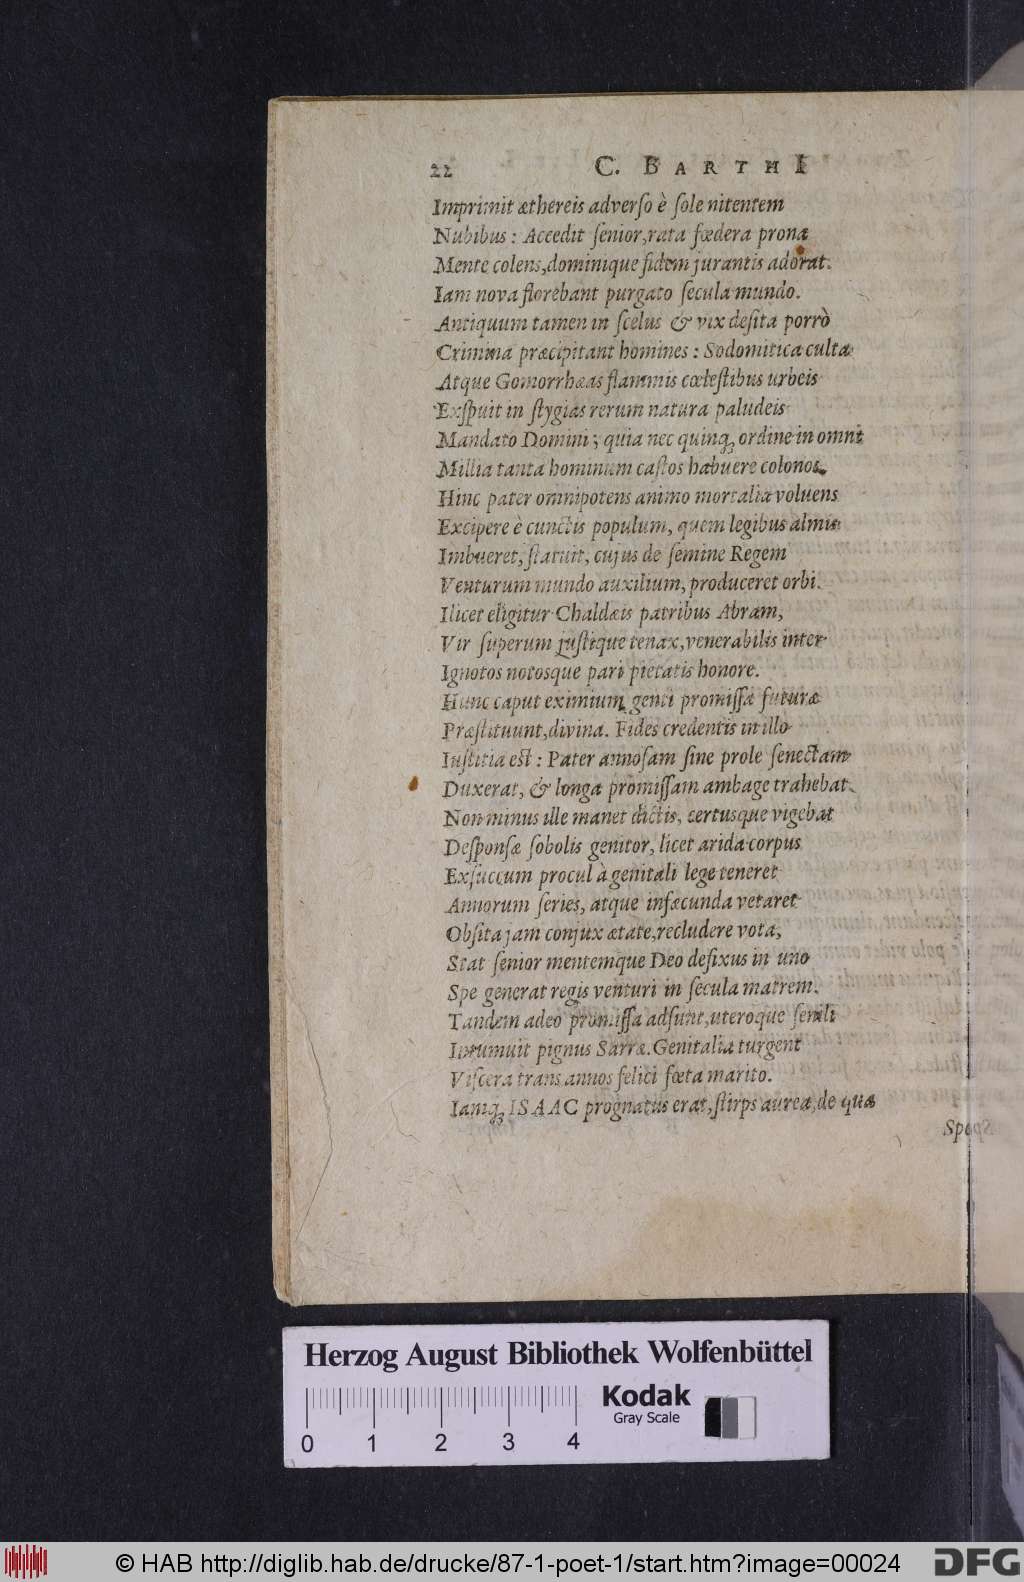 22 C. BARTHI
Imprimit æthereis adverſo è ſole nitentem
Nubibus : Accedit ſenior, rata fœdera prona
Mente colens, dominique fidem jurantis adorat.
Iam nova florebant purgato ſecula mundo.
Antiquum tamen in ſcelus & vix deſita porrò
Crimina præcipitant homines : Sodomitica culta
Atque Gomorrhæas flammis cœleſtibus urbeis
Exſpuit in ſtygias rerum natura paludeis
Mandato Domini ; quia nec quinq; ordine in omni
Millia tanta hominum caſtos habuere colonos.
Hinc pater omnipotens animo mortalia voluens
Excipere è cunctis populum, quem legibus almis
Imbueret, ſtatuit, cujus de ſemine Regem
Venturum mundo auxilium, produceret orbi.
Ilicet eligitur Chaldæis patribus Abram,
Vir ſuperum juſtique tenax, venerabilis inter
Ignotos notosque pari pietatis honore.
Hunc caput eximium genti promiſſæ futuræ
Præſtituunt, divina. Fides credentis in illo
Iuſtitia eſt : Pater annoſam ſine prole ſenectam
Duxerat, & longa promiſſam ambage trahebat.
Non minus ille manet dictis, certusque vigebat
Deſponſæ ſobolis genitor, licet arida corpus
Exſuccum procul à genitali lege teneret
Annorum ſeries, atque infæcunda vetaret
Obſita jam conjux ætate, recludere vota,
Stat ſenior mentemque Deo defixus in uno
Spe generat regis venturi in ſecula matrem.
Tandem adeo promiſſa adſunt, uteroque ſenili
Intumuit pignus Sarræ. Genitalia turgent
Viſcera trans annos felici fœta marito.
Iamq; ISAAC prognatus erat, ſtirps aurea, de qua
Spes
Herzog August Bibliothek Wolfenbüttel
Kodak
Gray Scale
0 1 2 3 4
© HAB http://diglib.hab.de/drucke/87-1-poet-1/start.htm?image=00024
DFG